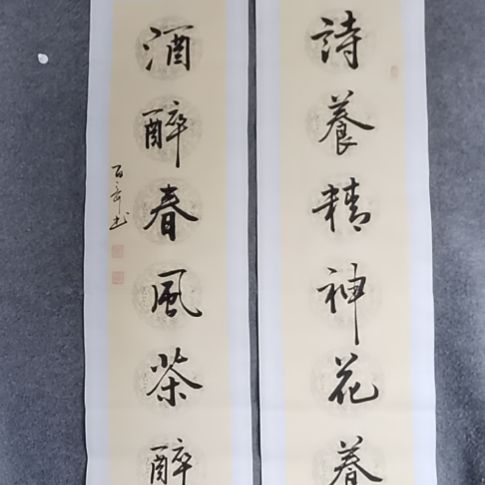 詩養精神花養
酒醉春風茶醉